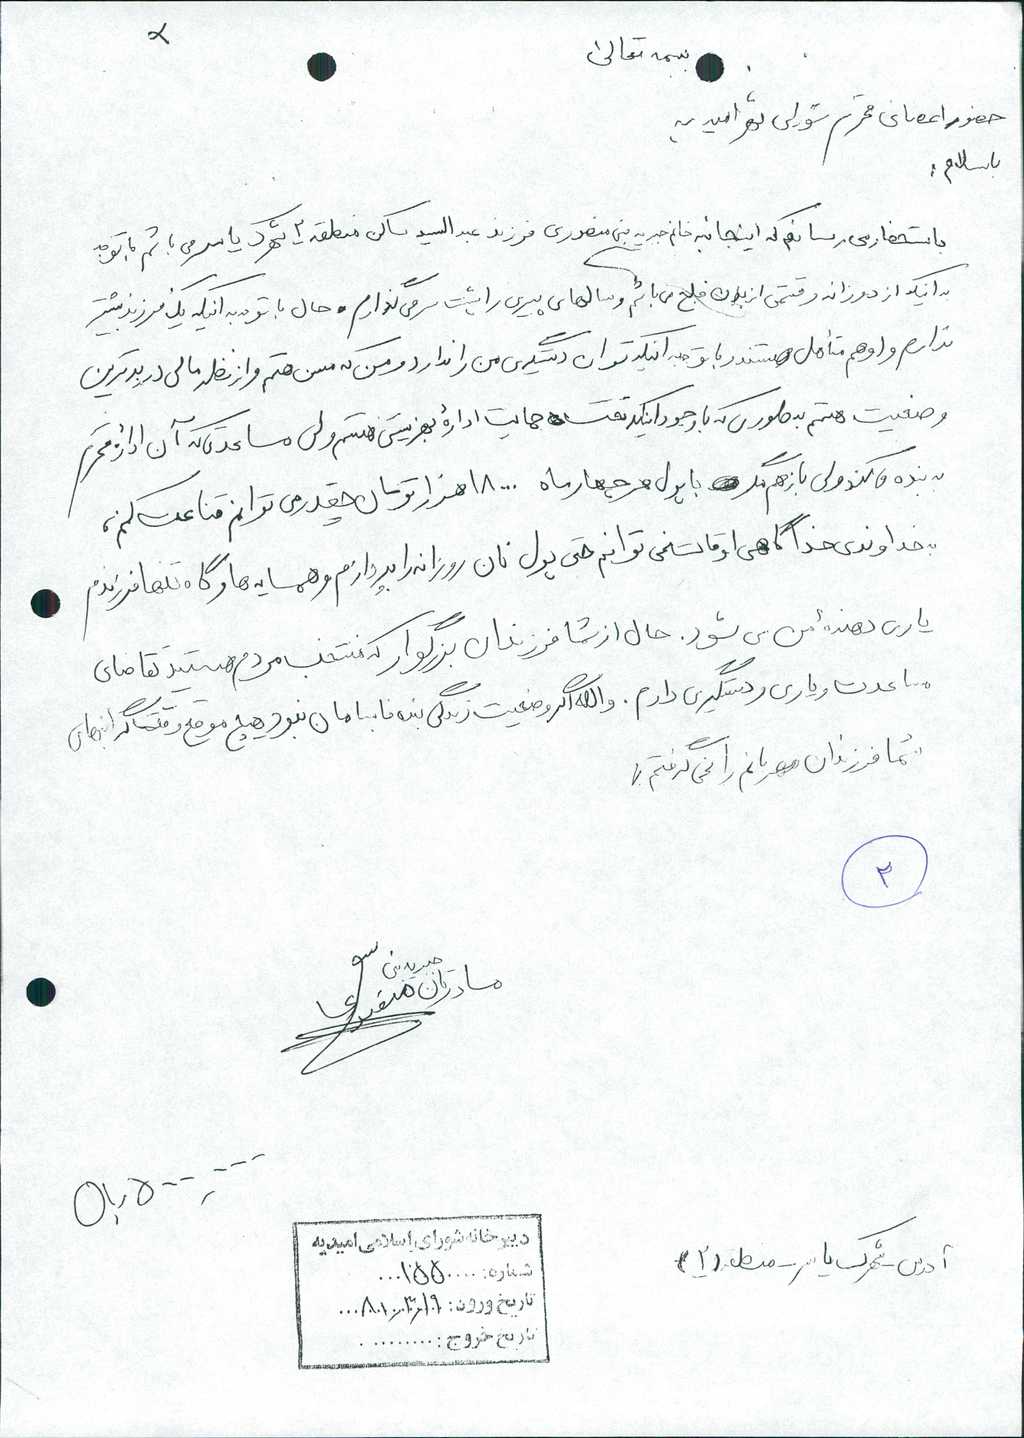 بسمه تعالی
حضور اعضای محترم شورای شهر امیدیه
با سلام:
باستحضار می رسانم که اینجانبه خانم خیریه بنی منصوری فرزند عبدالسید ساکن منطقه ۲ شهرک یاسر می باشم با توجه
به اینکه از دو زانه و قسمتی از بدن فلج می باشم و سالهای پیری را پشت سر می گذارم. حال با توجه به اینکه یک فرزند بیشتر
ندارم و او هم متأهل هستند با توجه اینکه توان دستگیری من را ندارد و من که مسن هستم و از نظر مالی در بدترین
وضعیت هستم به طوری که با وجود اینکه تحت حمایت ادارۀ بهزیستی هستم ولی مساعدتی که آن ادارۀ محترم
به بنده می کند ولی باز هم مگر با پول هر چهار ماه ۱۸۰۰۰ هزار تومان چقدر می توانم قناعت کنم،
به خداوندی خدا گاهی اوقات نمی توانم حتی پول نان روزانه را بپردازم و همسایه ها و گاه تنها فرزندم
یاری دهندۀ من می شود. حال از شما فرزندان بزرگوار که منتخب مردم هستید تقاضای
مساعدت و یاری و دستگیری دارم. والله اگر وضعیت زندگی بنده نابسامان نبود هیچ موقع وقت گرانبهای
شما فرزندان مهربانم را نمی گرفتم.
۲
خیریه بنی
منصوری
۵۰۰/۰۰۰ ریال
آدرس شهرک یاسر - منطقه (۲)
دبیرخانه شورای اسلامی امیدیه
شماره: ۱۵۵
تاریخ ورود: ۸۰/۳/۱۹
تاریخ خروج: